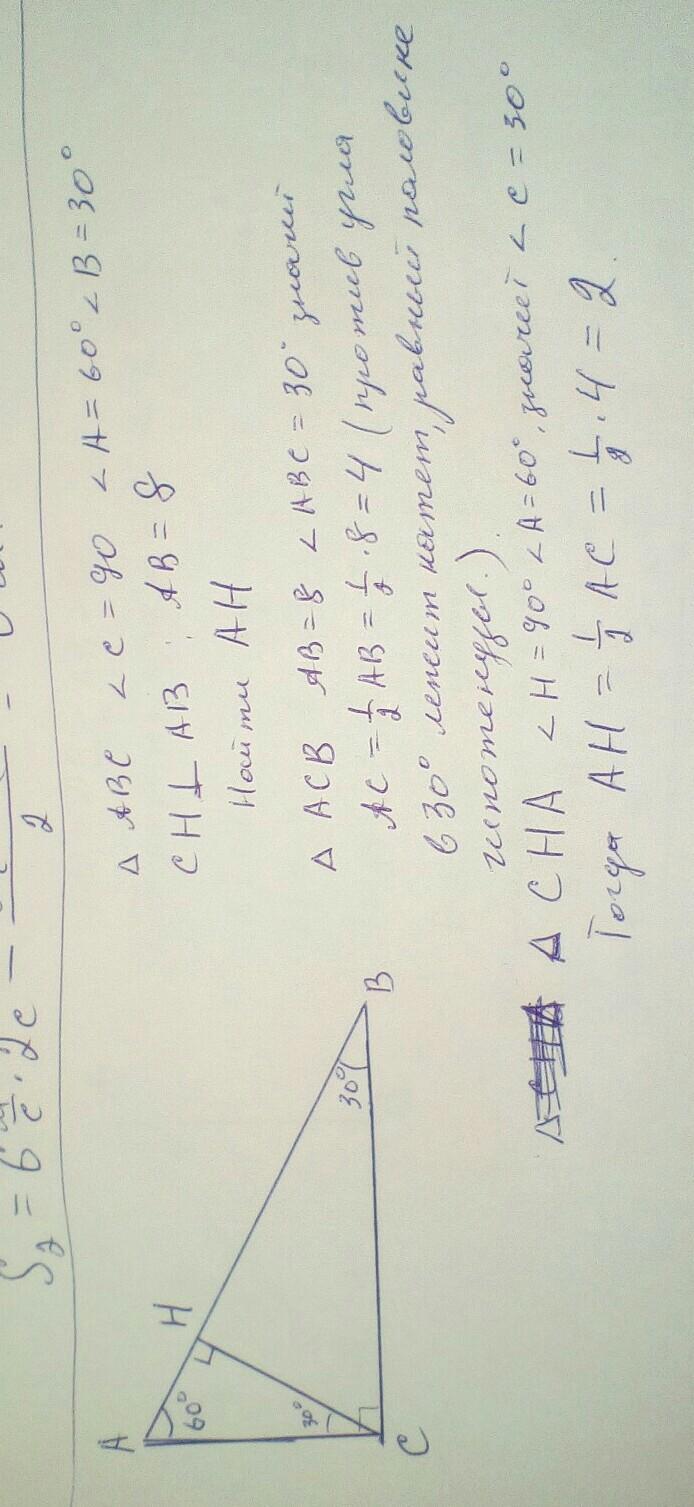 S₂ = 6 м/с · 2с —
2
△ ABC ∠C = 90 ∠A = 60° ∠B = 30°
CH⊥AB; AB = 8
Найти AH
△ ACB AB = 8 ∠ABC = 30° значит
AC = 1/2 AB = 1/2 · 8 = 4 (против угла
в 30° лежит катет, равный половине
гипотенузы.)
△ CHA ∠H = 90° ∠A = 60°, значит ∠C = 30°
Тогда AH = 1/2 AC = 1/2 · 4 = 2.
A
H
B
C
60°
30°
30°